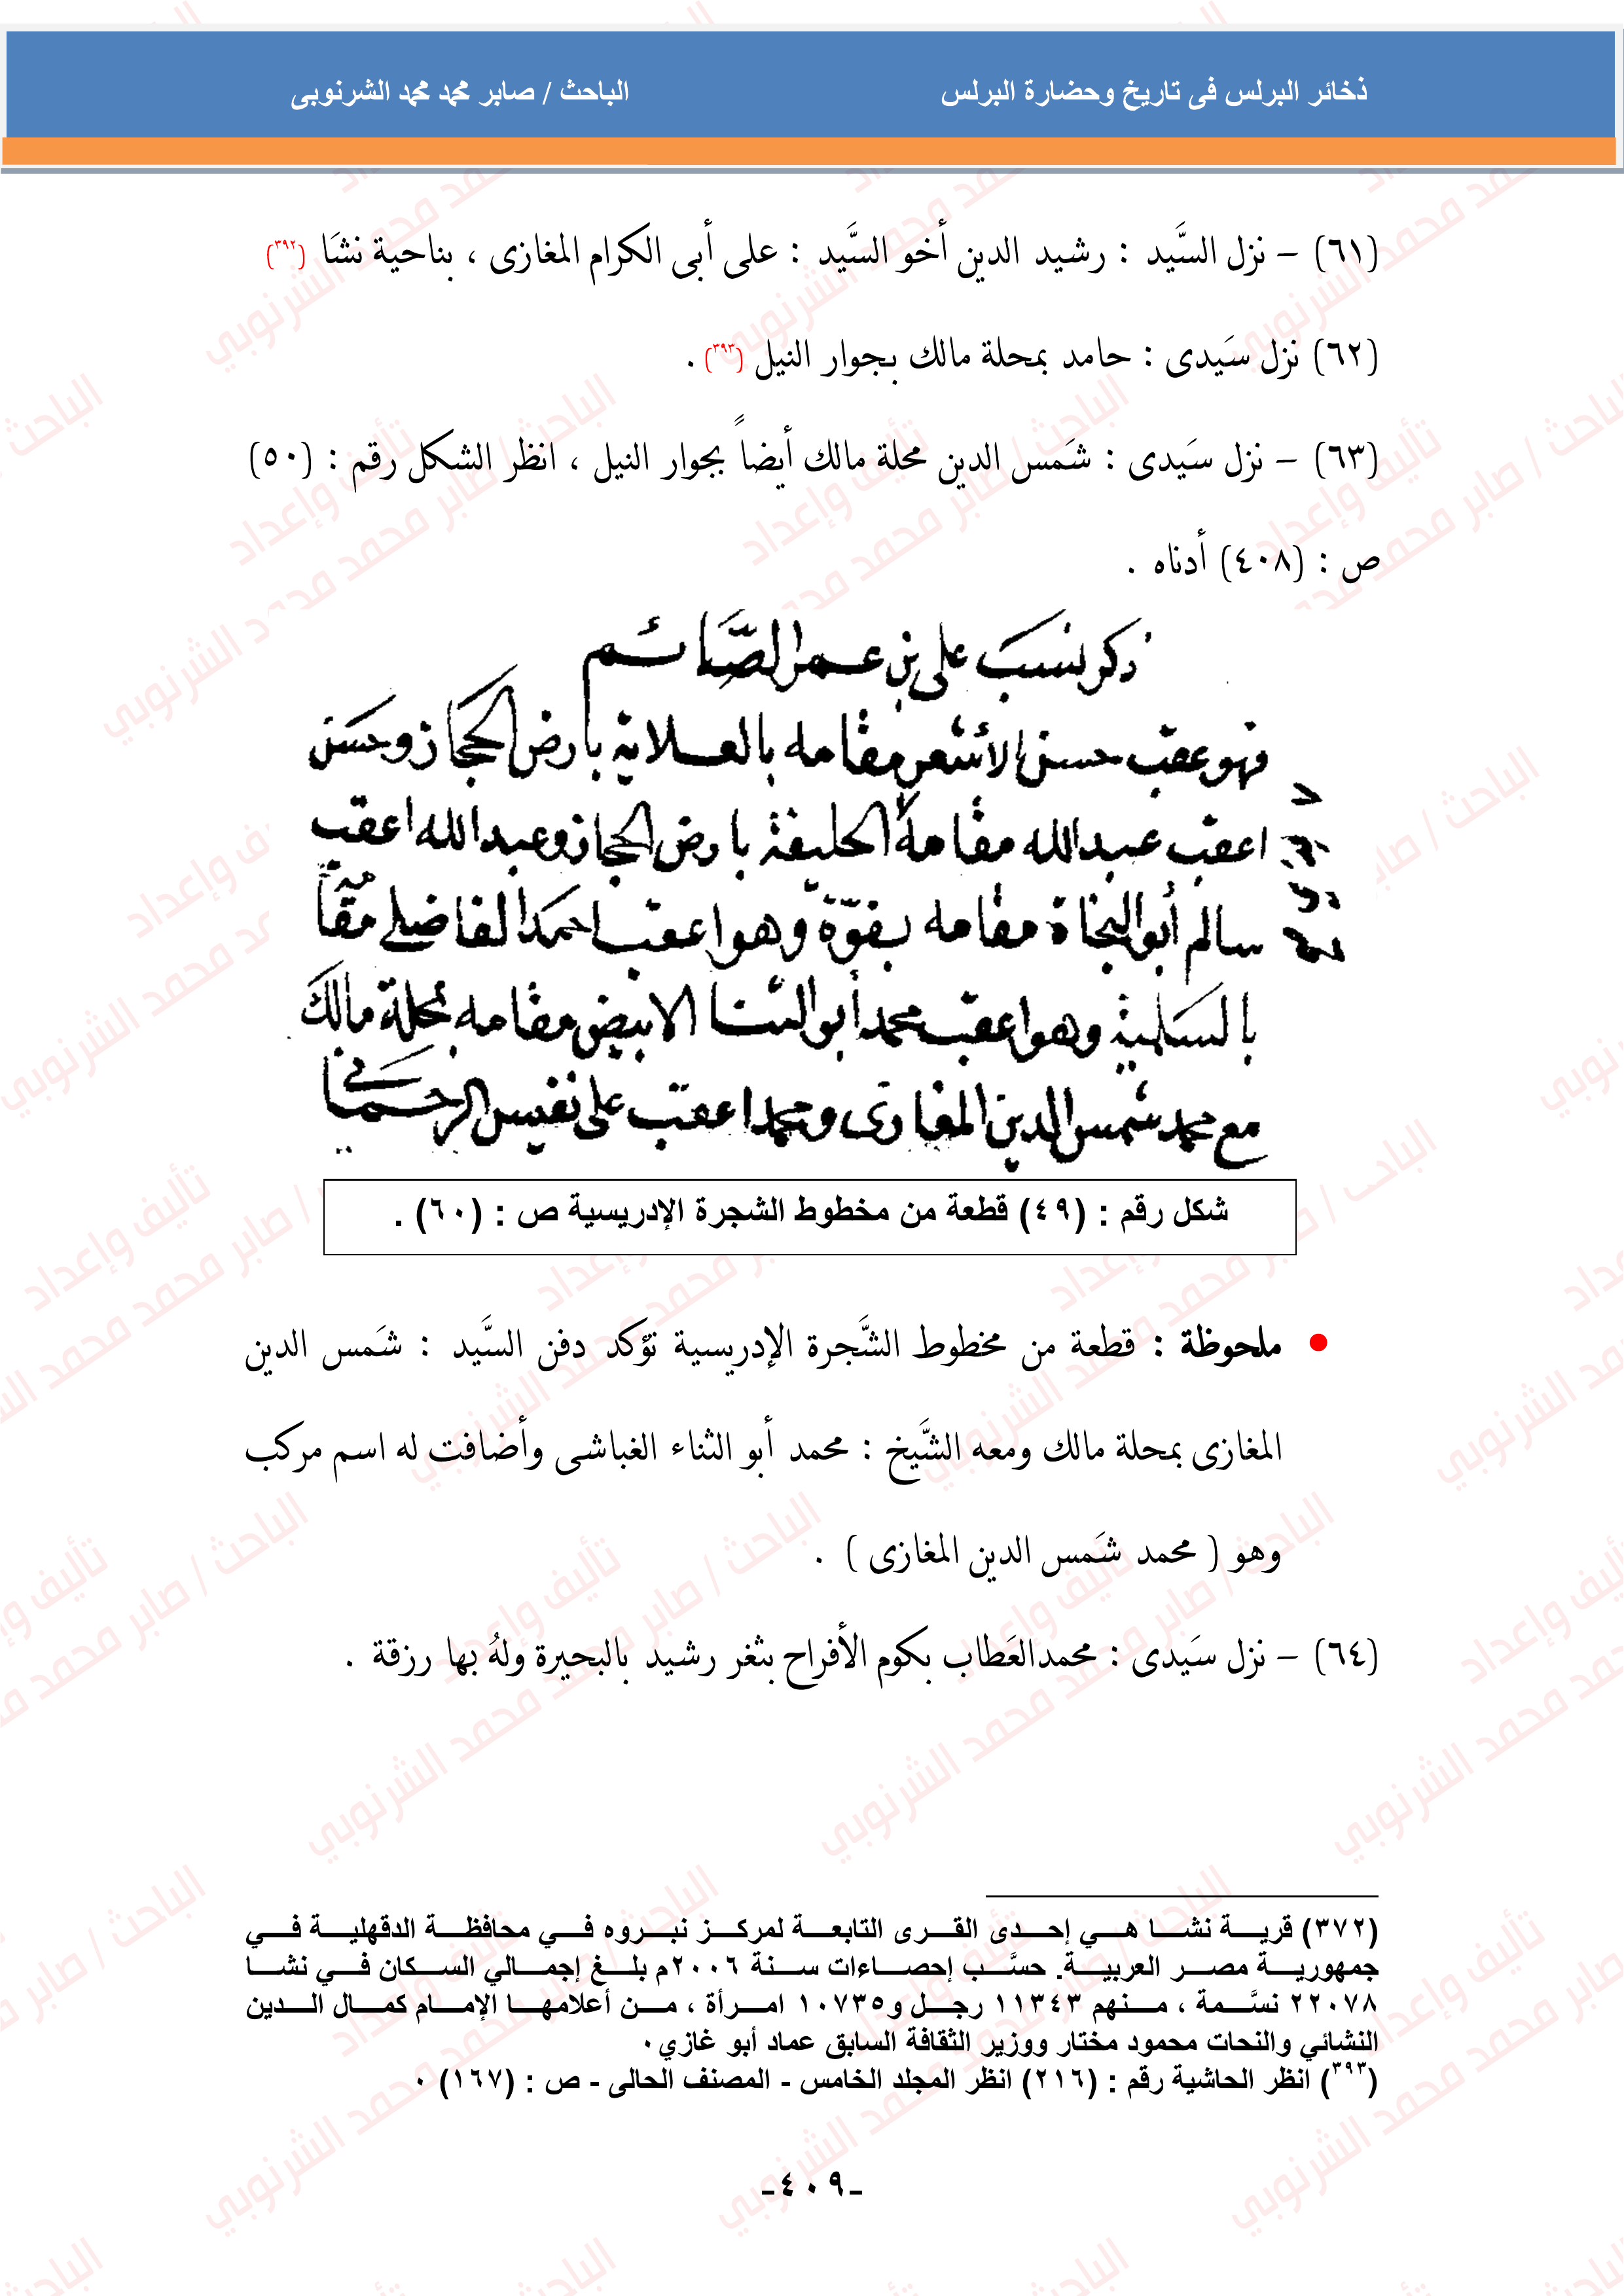 ذخائر البرلس فى تاريخ وحضارة البرلس الباحث / صابر محمد محمد الشرنوبى
(٦١) – نزل السَّيد : رشيد الدين أخو السَّيد : على أبى الكرام المغازى ، بناحية نشَا (٣٩٢)
(٦٢) نزل سَيدى : حامد بمحلة مالك بجوار النيل (٣٩٣) .
(٦٣) – نزل سَيدى : شَمس الدين محلة مالك أيضاً بجوار النيل ، انظر الشكل رقم : (٥٠)
ص : (٤٠٨) أدناه .
ذكر نسب على بن عمر الصَّائم
فهو عقب حسن الأشعر مقامه بالعلانية بارض الحجاز وحسن
اعقب عبد الله مقامه الحليفة بارض الحجاز وعبد الله اعقب
سالم أبو النجاة مقامه بفوّة وهو اعقب احمد الفاضلى مُقامه
بالسلمية وهو اعقب محمد أبو الثنا الابيض مقامه بمحلة مالك
مع محمد شمس الدين المغازى ومحمد اعقب على نفيس الرحمانى
شكل رقم : (٤٩) قطعة من مخطوط الشجرة الإدريسية ص : (٦٠) .
• ملحوظة : قطعة من مخطوط الشَّجرة الإدريسية تؤكد دفن السَّيد : شَمس الدين
المغازى بمحلة مالك ومعه الشَّيخ : محمد أبو الثناء الغباشى وأضافت له اسم مركب
وهو ( محمد شَمس الدين المغازى ) .
(٦٤) – نزل سَيدى : محمدالعَطاب بكوم الأفراح بثغر رشيد بالبحيرة ولهُ بها رزقة .
(٣٧٢) قرية نشا هي إحدى القرى التابعة لمركز نبروه في محافظة الدقهلية في
جمهورية مصر العربية. حسَّب إحصاءات سنة ٢٠٠٦م بلغ إجمالي السكان في نشا
٢٢٠٧٨ نسَّمة ، منهم ١١٣٤٣ رجل و١٠٧٣٥ امرأة ، من أعلامها الإمام كمال الدين
النشائي والنحات محمود مختار ووزير الثقافة السابق عماد أبو غازي٠
(٣٩٣) انظر الحاشية رقم : (٢١٦) انظر المجلد الخامس - المصنف الحالى - ص : (١٦٧) ٠
-٤٠٩-
تأليف وإعداد
الباحث / صابر محمد محمد الشرنوبي